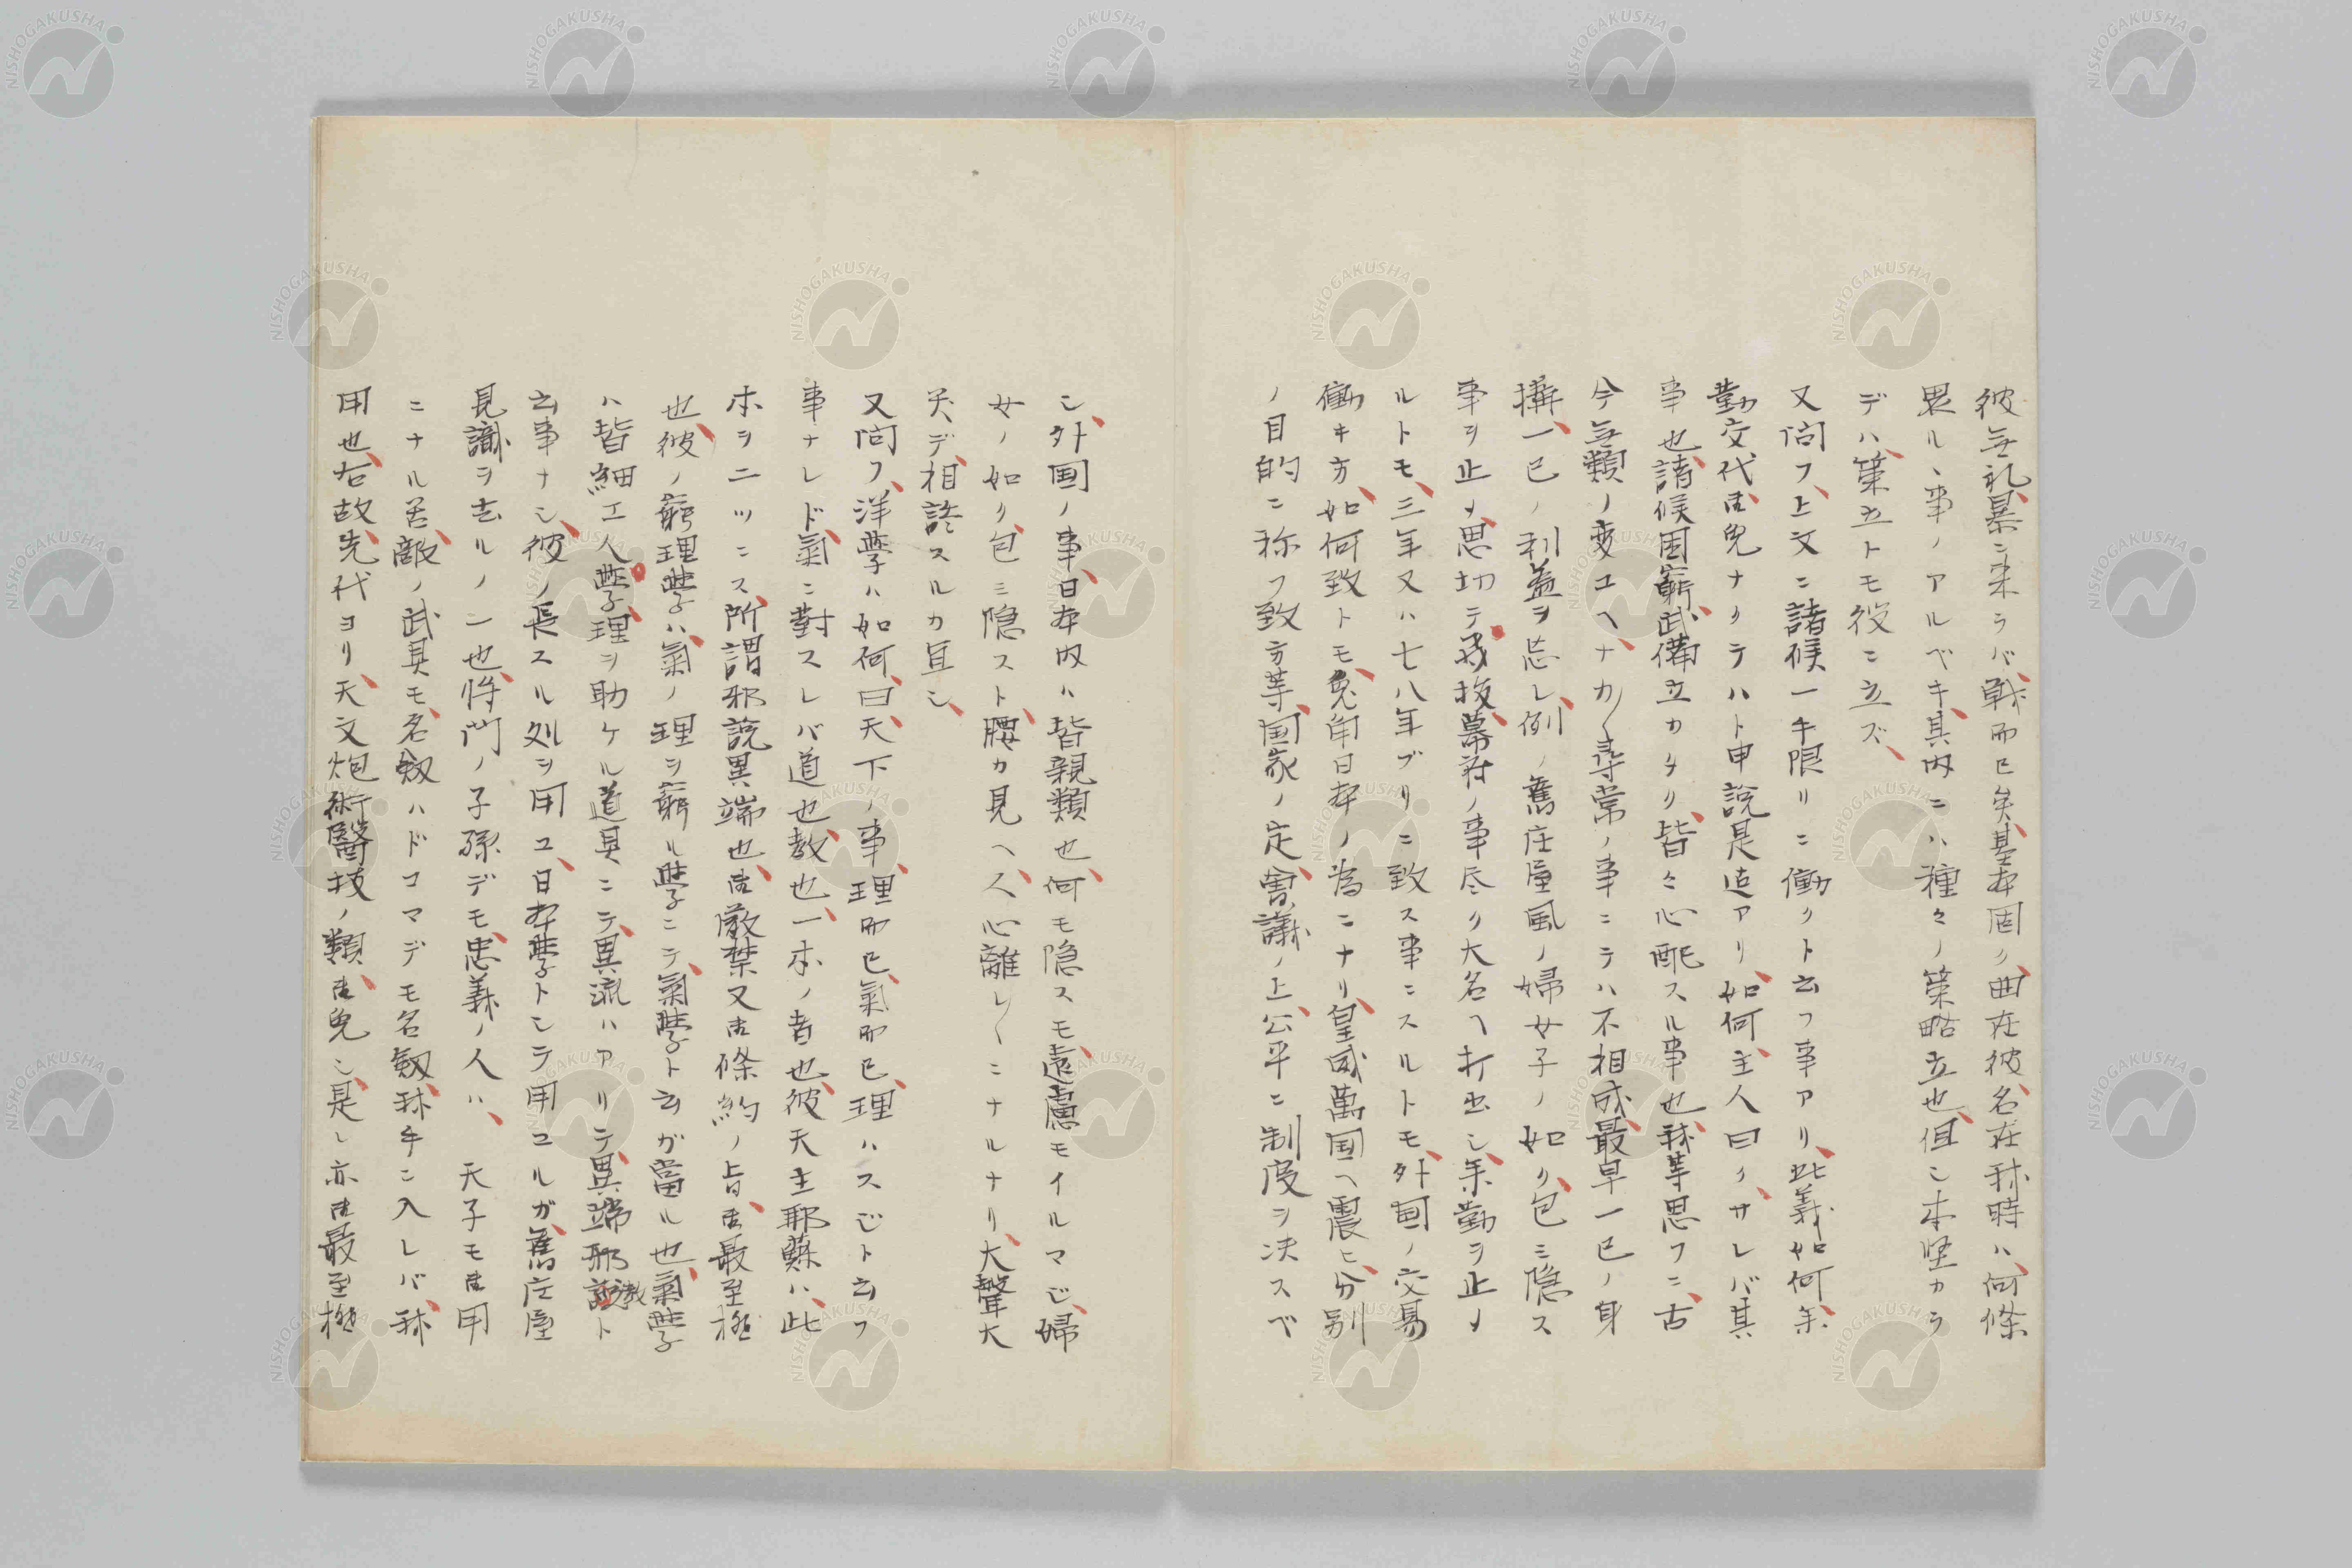 彼無礼暴ニ来ラバ、戦而已矣、基本固ク、曲在彼、名在我時ハ、何條
畏ルヽ事ノアルベキ、其内ニハ種々ノ策略立也、但シ本堅カラ
デハ、策立トモ役ニ立ズ、
又問フ、上文ニ諸候一手限リニ働クト云フ事アリ、此義如何、余、
勤交代御免ナクテハト申説是迄アリ、如何、主人曰ク、サレバ其
事也、諸候困窮、武備立カタク、皆々心配スル事也、我等思フニ、古
今無類ノ変ユヘ、ナカ〳〵尋常ノ事ニテハ不相成、最早一己ノ身
搆、一己ノ利益ヲ忘レ、例ノ舊庄屋風ノ婦女子ノ如ク、包ミ隠ス
事ヲ止メ、思切テ、抜、幕府ノ事尽ク大名ヘ打出シ、余勤ヲ止メ
ルトモ、三年又ハ七八年ブリニ致ス事ニスルトモ、外国ノ交易
働キ方、如何致トモ、兔角日本ノ為ニナリ、皇威萬国ヘ震ヒ、分別
ノ目的ニ称フ致方等、国家ノ定、會議ノ上、公平ニ制度ヲ决スベ
シ、外国ノ事、日本内ハ皆親類也、何モ隠スモ、遠慮モイルマジ、婦
女ノ如ク、包ミ隠スト、腰カ見ヘ、人心離レ〳〵ニナルナリ、大聲大
笑デ、相談スルカ宜シ、
又問フ、洋學ハ如何、曰、天下ノ事、理而已、氣而已、理ハスジト云フ
事ナレド、氣ニ對スレバ道也、教也、一本ノ者也、彼天主耶蘇ハ、此
本ヲ二ツニス、所謂邪説異端也、御厳禁又御條約ノ旨、御最至極
也、彼ノ窮理學ハ、氣ノ理ヲ窮ル學ニテ、氣學ト云ガ當ル也、氣學
ハ皆細工人學、理ヲ助ケル道具ニテ、異流ハアリテ、異端邪教ト
云事ナシ、彼ノ長スル処ヲ用ユ、日本學トシテ用ユルガ、舊庄屋
見識ヲ去ルノ一也、将門ノ子孫デモ、忠義ノ人ハ、 天子モ御用
ニナル筈、敵ノ武具モ、名劔ハドコマデモ名劔、我手ニ入レバ、我
用也、右故、先代ヨリ、天文炮術醫技ノ類、御免シ、是レ亦御最至極